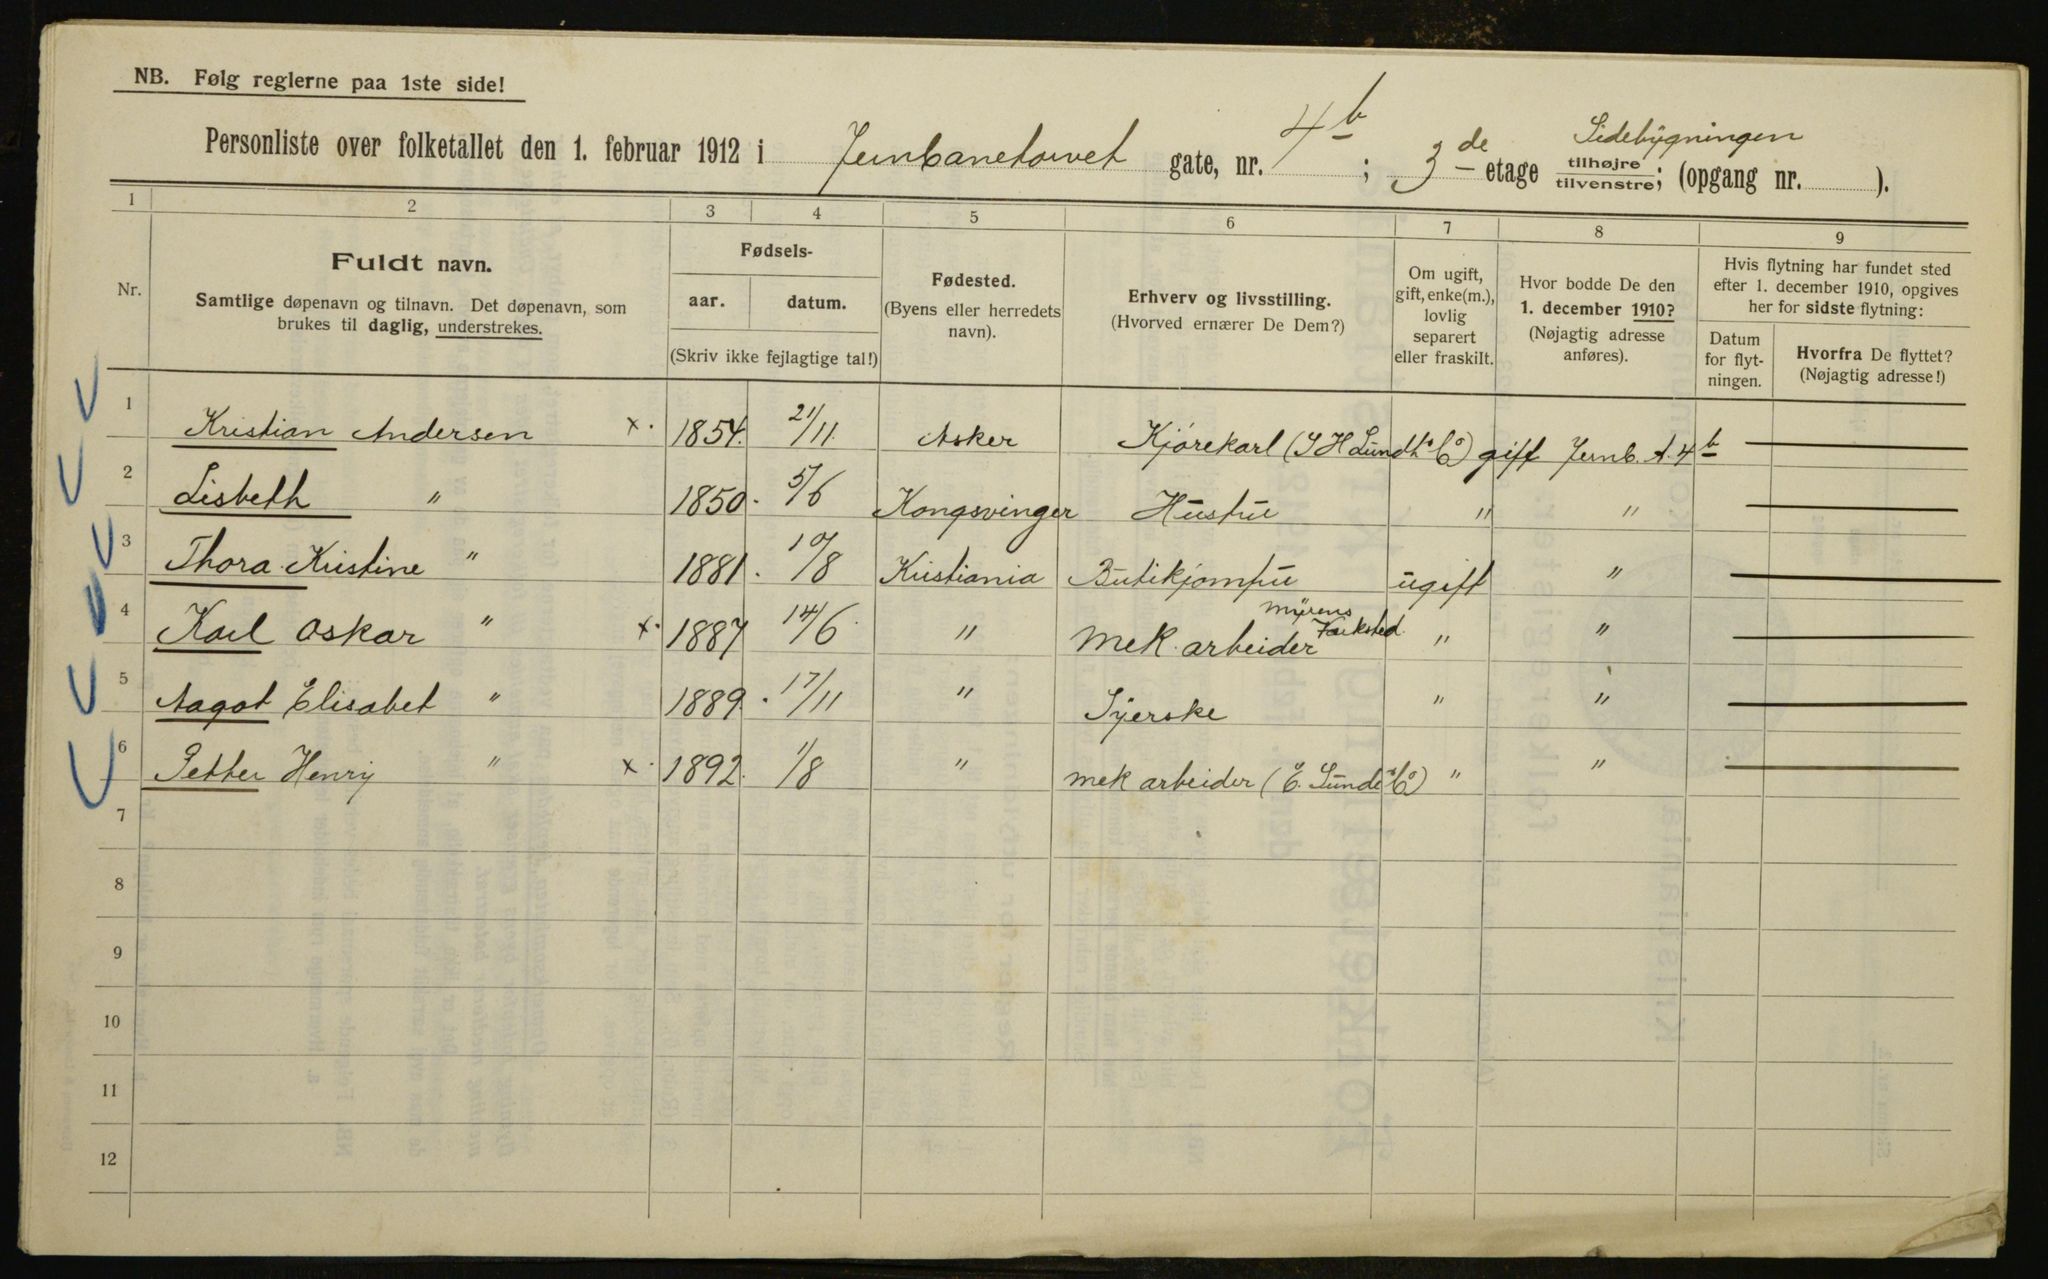 NB. Følg reglerne paa 1ste side!
Personliste over folketallet den 1. februar 1912 i Jernbanetorvet gate, nr. 4b; 3de etage Sidebygningen tilhøjre tilvenstre; (opgang nr. ).
1 2 3 4 5 6 7 8 9
Nr.
Fuldt navn.
Samtlige døpenavn og tilnavn. Det døpenavn, som
brukes til daglig, understrekes.
Fødsels-
aar. datum.
(Skriv ikke fejlagtige tal!)
Fødested.
(Byens eller herredets
navn).
Erhverv og livsstilling.
(Hvorved ernærer De Dem?)
Om ugift,
gift, enke(m.),
lovlig
separert
eller fraskilt.
Hvor bodde De den
1. december 1910?
(Nøjagtig adresse
anføres).
Hvis flytning har fundet sted
efter 1. december 1910, opgives
her for sidste flytning:
Datum
for flyt-
ningen.
Hvorfra De flyttet?
(Nøjagtig adresse!)
1 Kristian Andersen x. 1854. 21/11. Asker Kjørekarl (S H Lundh & Co) gift Jernb. t. 4b
2 Lisbeth " 1850. 5/6 Kongsvinger Hustru " "
3 Thora Kristine " 1881. 10/8 Kristiania Butikjomfru ugift "
4 Karl Oskar " x. 1887 14/6. " Mek. arbeider Myrens Verksted. " "
5 Aagot Elisabet " 1889. 17/11 " Syerske " "
6 Petter Henry " x. 1892. 1/8 " Mek arbeider (E. Sunde & Co) " "
7
8
9
10
11
12